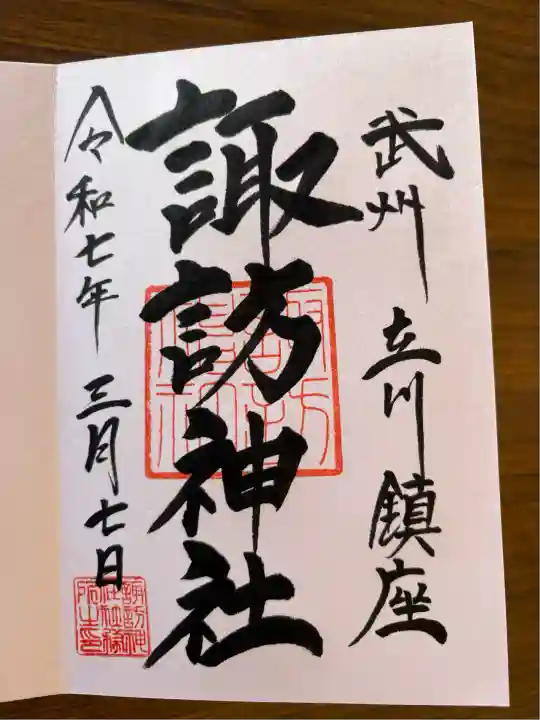 武州 立川 鎮座
諏訪神社
令和七年 三月七日